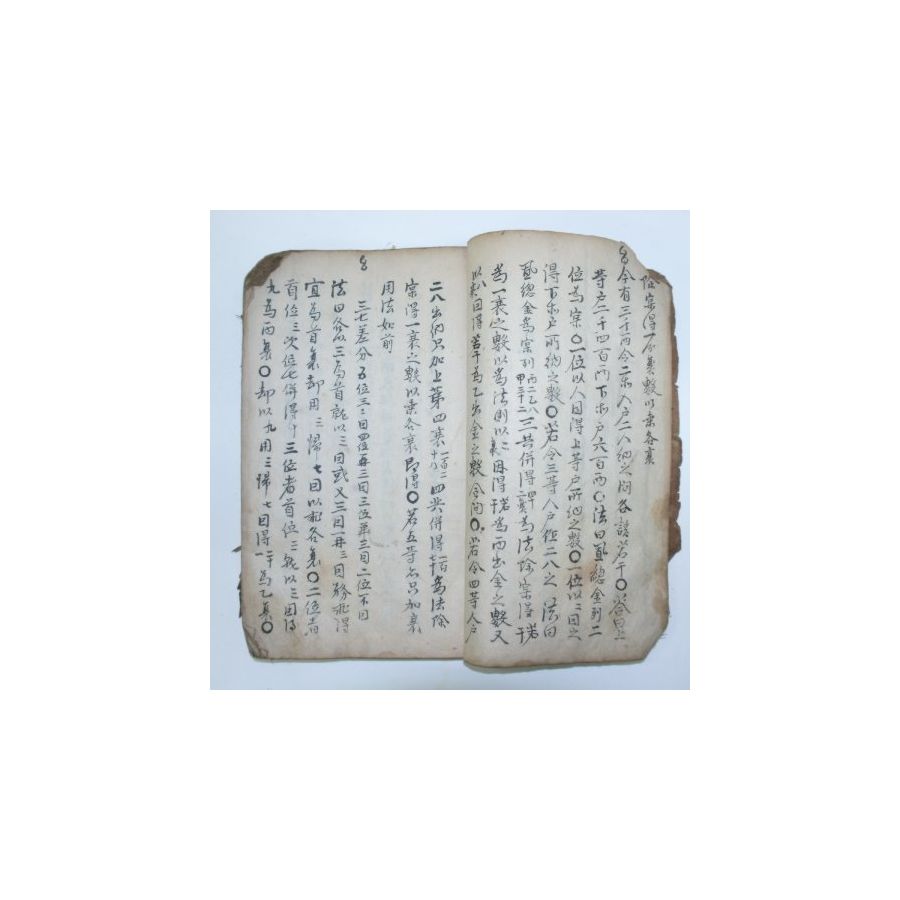 除实得一分衰數以乘各衰
今有三千两令二等入户二八納之問各該若干〇答曰上
等户二千四百两下等户六百两〇法曰置總金列二
位為实〇一位以八因得上等户所納之數〇一位以二因之
得下等户所納之數〇若令三等人户作二八之法曰
置總金為实列丙二乙八甲三十二三共併得為法除实得若干
為一衰之數以為法則以二因得若干為丙出金之數又
以八因得若干為乙出金之數〇若令四等人户
二八出納只加上第四衰一百二十八四共併得一百七十為法除
实得一衰之數以乘各衰即得〇若五等亦只加衰
用法如前
三七差分五位三三因四位再三因三位單三因二位不因
法曰各以三為首就以三因或又三因一再三因務求得
宜為首衰却用三歸七因以求各衰〇二位者
首位三次位七併得十三位者首位三就以三因得
九為丙衰〇却以九用三歸七因得二十一為乙衰〇